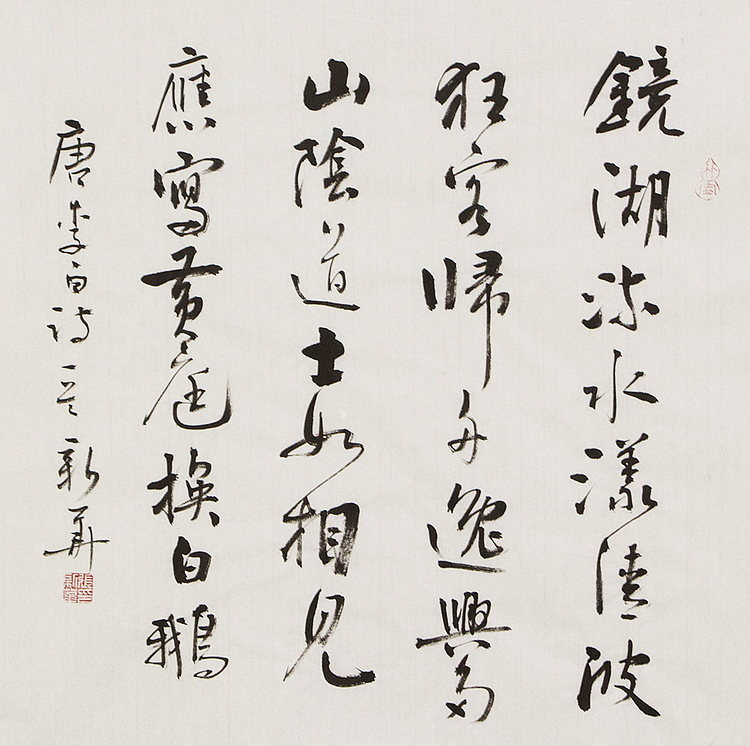 鏡湖流水漾清波
狂客歸舟逸興多
山陰道士如相見
應寫黃庭換白鵝
唐李白詩 新華